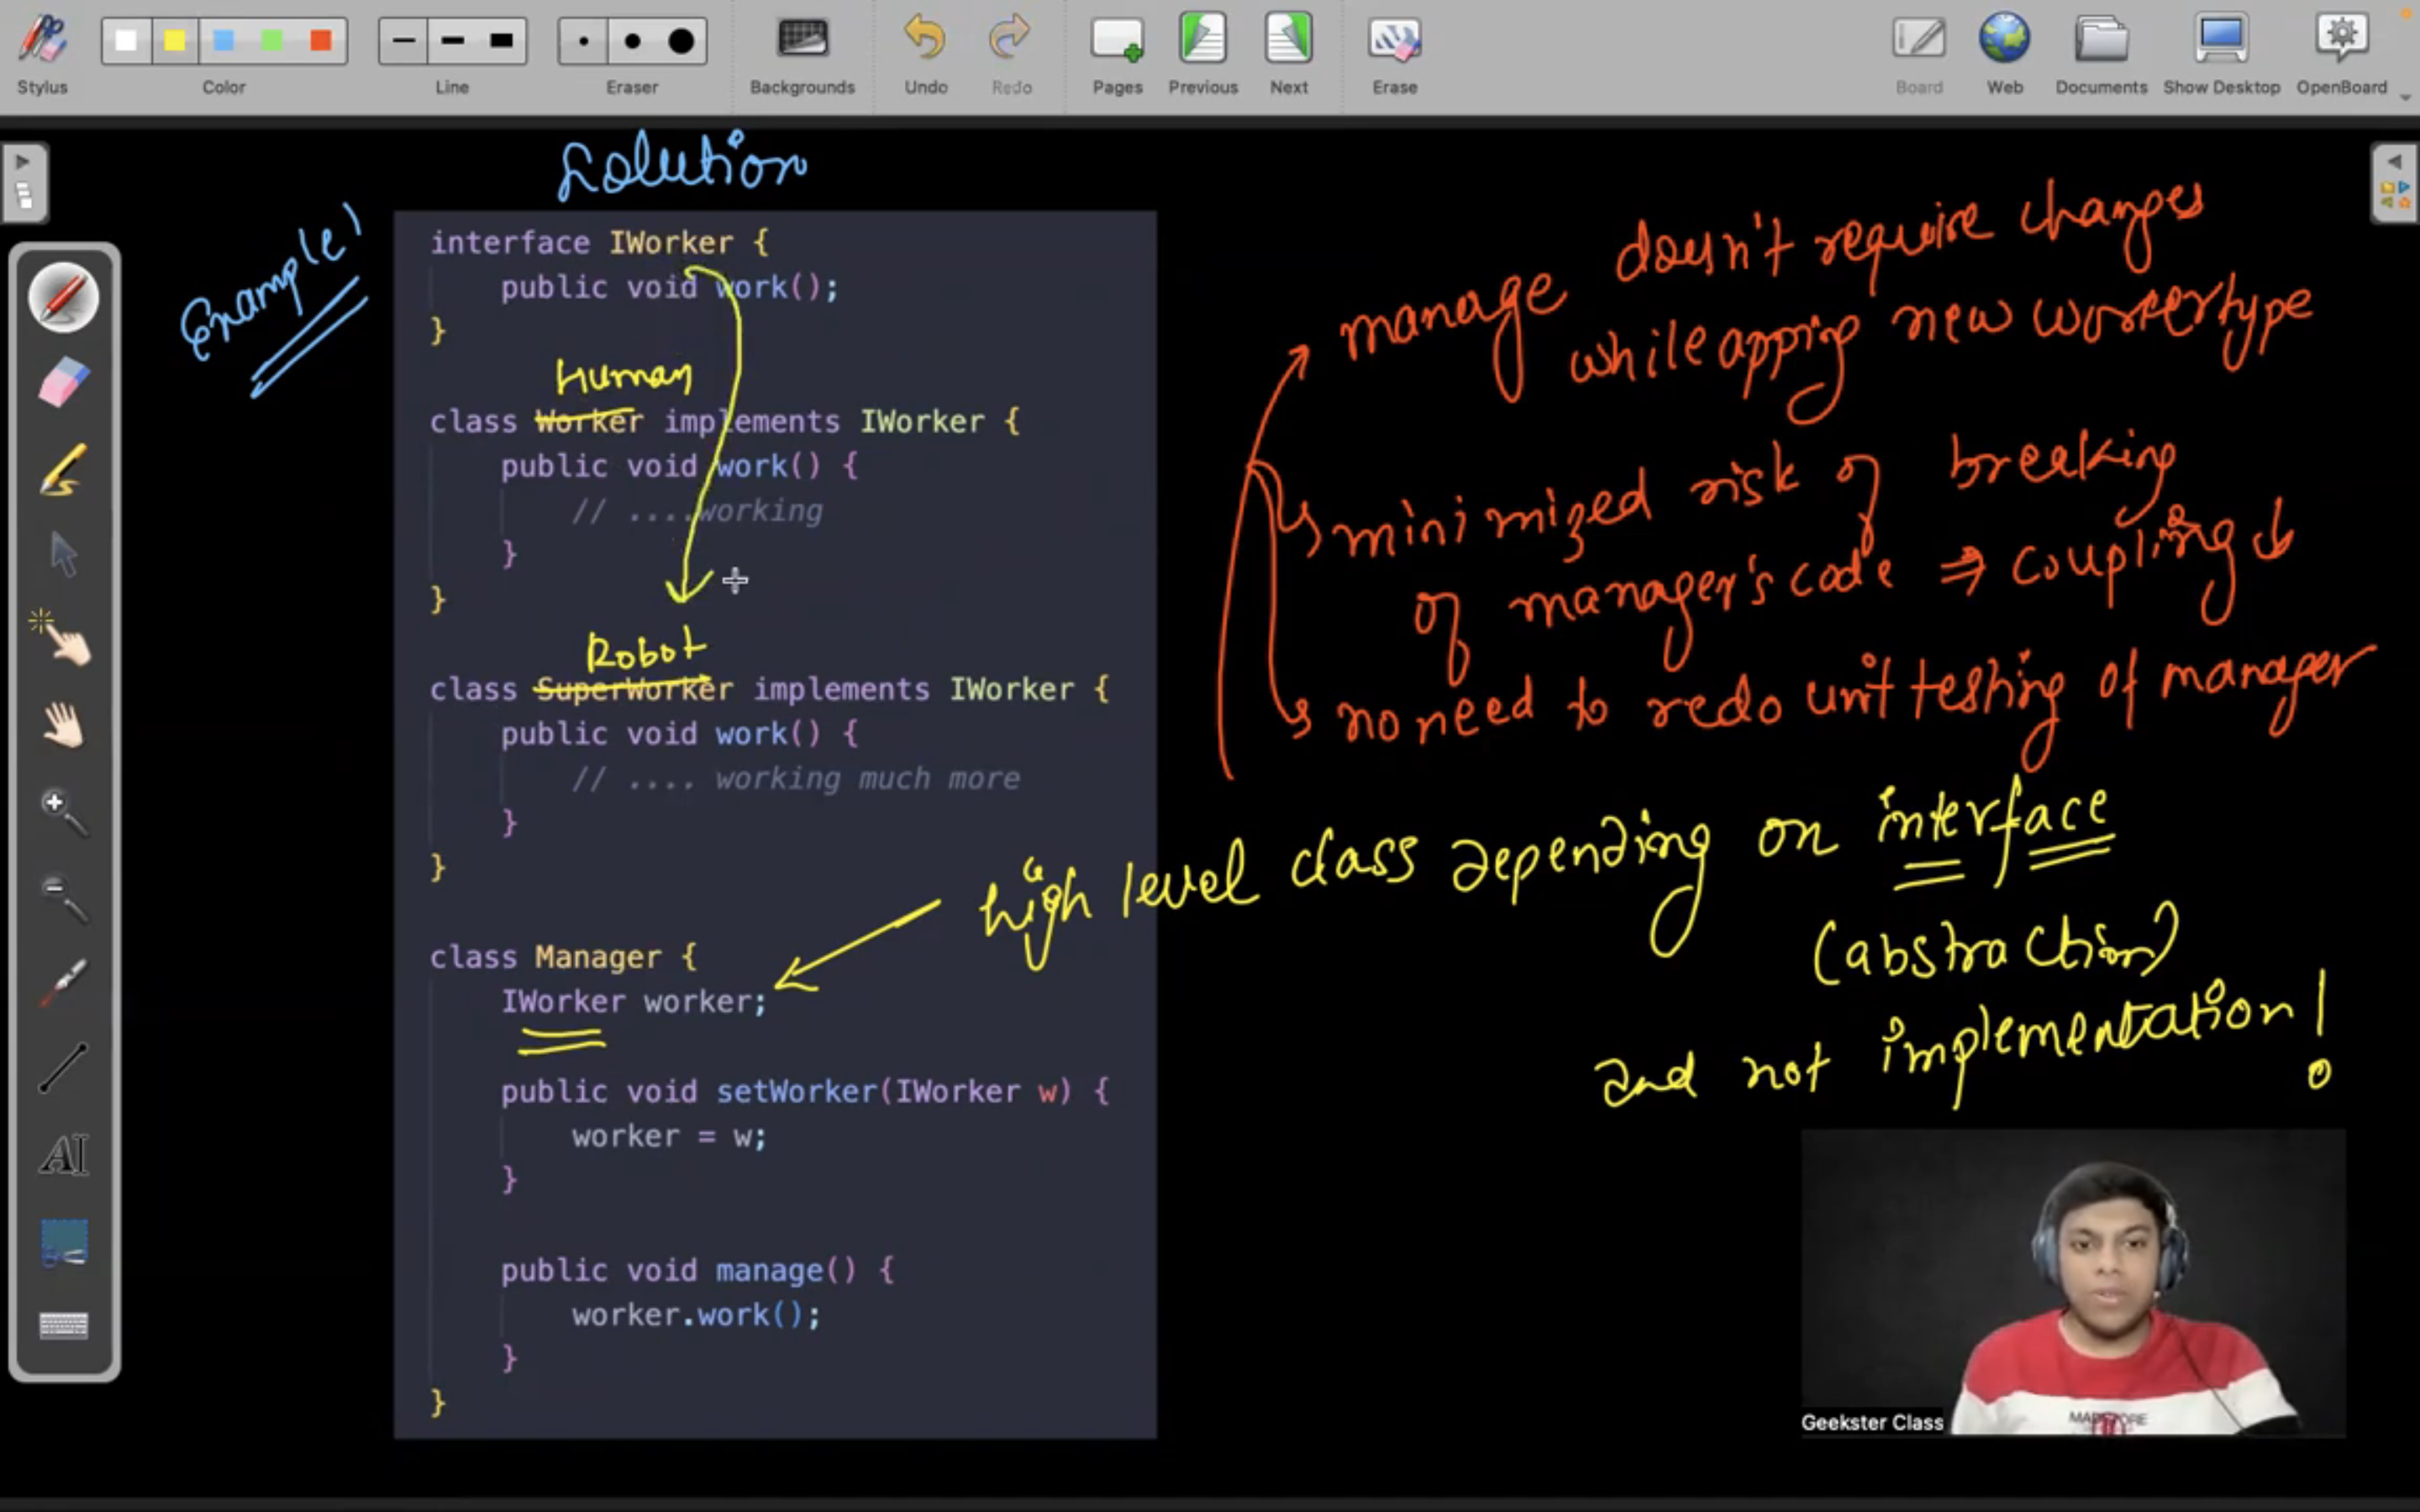 Stylus
Color
Line
Eraser
Backgrounds
Undo
Redo
Pages
Previous
Next
Erase
Board
Web
Documents
Show Desktop
OpenBoard
Solution
Example 1
interface IWorker {
public void work();
}
Human
class Worker implements IWorker {
public void work() {
// ....working
}
}
Robot
class SuperWorker implements IWorker {
public void work() {
// .... working much more
}
}
class Manager {
IWorker worker;
public void setWorker(IWorker w) {
worker = w;
}
public void manage() {
worker.work();
}
}
manage doesn't require changes
while apping new workertype
minimized risk of breaking
of manager's code ⇒ coupling ↓
no need to redo unit testing of manager
high level class depending on interface
(abstraction)
and not implementation!
AI
Geekster Class